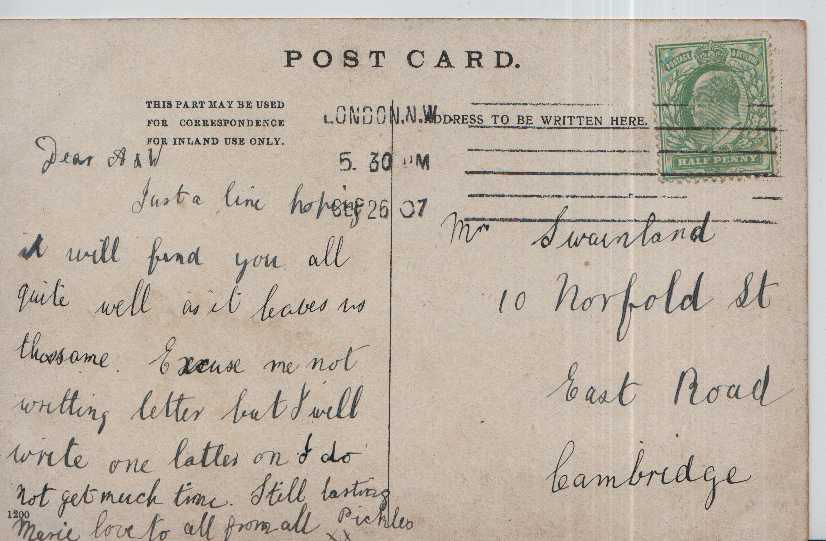 POST CARD.
THIS PART MAY BE USED
FOR CORRESPONDENCE
FOR INLAND USE ONLY.
ADDRESS TO BE WRITTEN HERE.
LONDON.N.W.
5. 30 PM
SEP 26 07
POSTAGE & REVENUE
HALF PENNY
Dear A & W
Just a line hoping
it will find you all
quite well as it leaves us
the same. Excuse me not
writting letter but I will
write one latter on I do
not get much time. Still lasting
Marie love to all from all Pickles
xx
1200
Mr Swainland
10 Norfold St
East Road
Cambridge